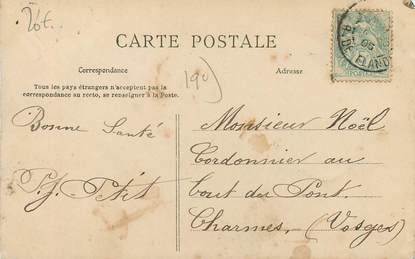 CARTE POSTALE
Correspondance
Adresse
Tous les pays étrangers n'acceptent pas la
correspondance au recto, se renseigner à la Poste.
190
Bonne Santé
Petit
Monsieur Noël
Cordonnier au
bout du Pont.
Charmes, (Vosges)